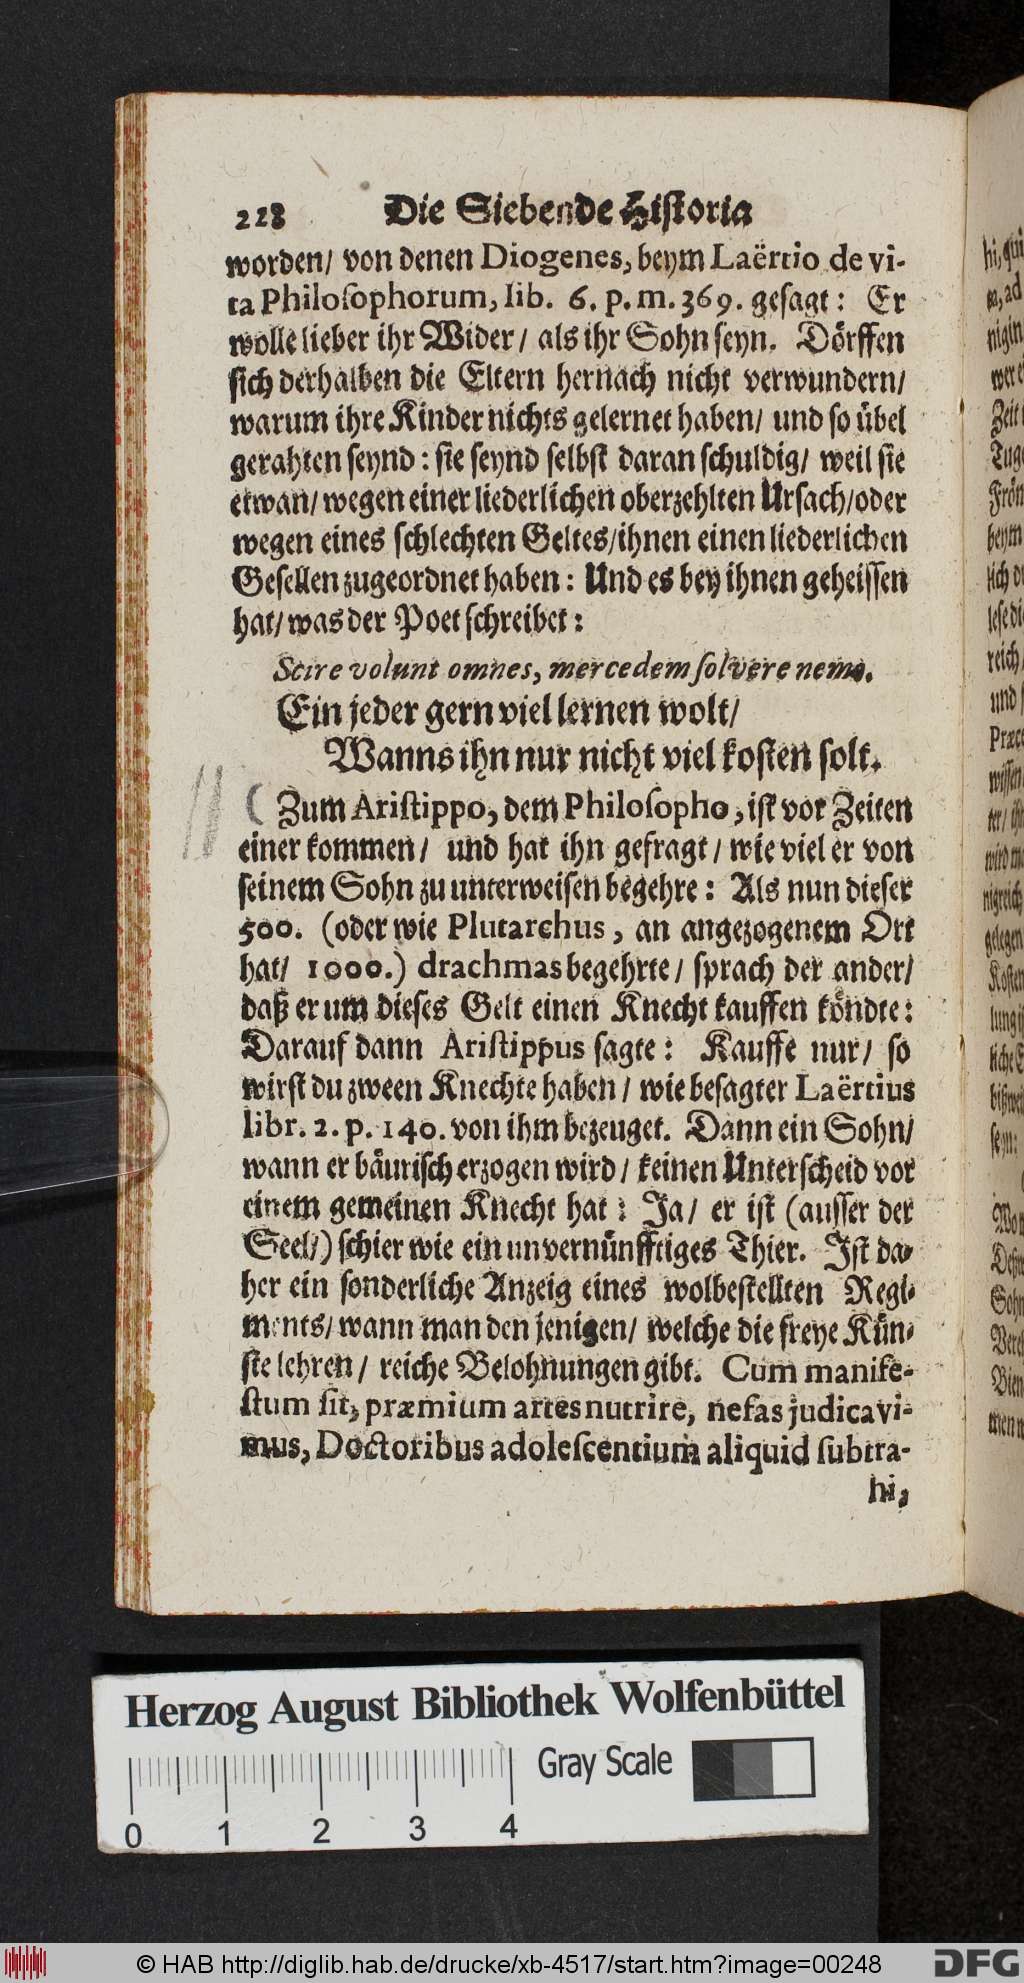 228 Die Siebende Historia
worden/ von denen Diogenes, beym Laërtio de vi-
ta Philoſophorum, lib. 6. p. m. 369. geſagt: Er
wolle lieber ihr Wider/ als ihr Sohn ſeyn. Dörffen
ſich derhalben die Eltern hernach nicht verwundern/
warum ihre Kinder nichts gelernet haben/ und ſo übel
gerahten ſeynd: ſie ſeynd ſelbſt daran ſchuldig/ weil ſie
etwan/ wegen einer liederlichen oberzehlten Urſach/oder
wegen eines ſchlechten Geltes/ihnen einen liederlichen
Geſellen zugeordnet haben: Und es bey ihnen geheiſſen
hat/ was der Poet ſchreibet:
Scire volunt omnes, mercedem ſolvere nemo.
Ein jeder gern viel lernen wolt/
Wanns ihn nur nicht viel koſten ſolt.
Zum Ariſtippo, dem Philoſopho, iſt vor Zeiten
einer kommen/ und hat ihn gefragt/ wie viel er von
ſeinem Sohn zu unterweiſen begehre: Als nun dieſer
500. (oder wie Plutarchus, an angezogenem Ort
hat/ 1000.) drachmas begehrte/ ſprach der ander/
daß er um dieſes Gelt einen Knecht kauffen köndte:
Darauf dann Ariſtippus ſagte: Kauffe nur/ ſo
wirſt du zween Knechte haben/ wie beſagter Laërtius
libr. 2. p. 140. von ihm bezeuget. Dann ein Sohn/
wann er bäuriſch erzogen wird/ keinen Unterſcheid vor
einem gemeinen Knecht hat: Ja/ er iſt (auſſer der
Seel/) ſchier wie ein unvernünfftiges Thier. Iſt da-
her ein ſonderliche Anzeig eines wolbeſtellten Regi-
ments/ wann man den jenigen/ welche die freye Kün-
ſte lehren/ reiche Belohnungen gibt. Cum manife-
ſtum ſit, præmium artes nutrire, nefas judicavi-
mus, Doctoribus adoleſcentium aliquid ſubtra-
hi,
Herzog August Bibliothek Wolfenbüttel
Gray Scale
0 1 2 3 4
© HAB http://diglib.hab.de/drucke/xb-4517/start.htm?image=00248
DFG